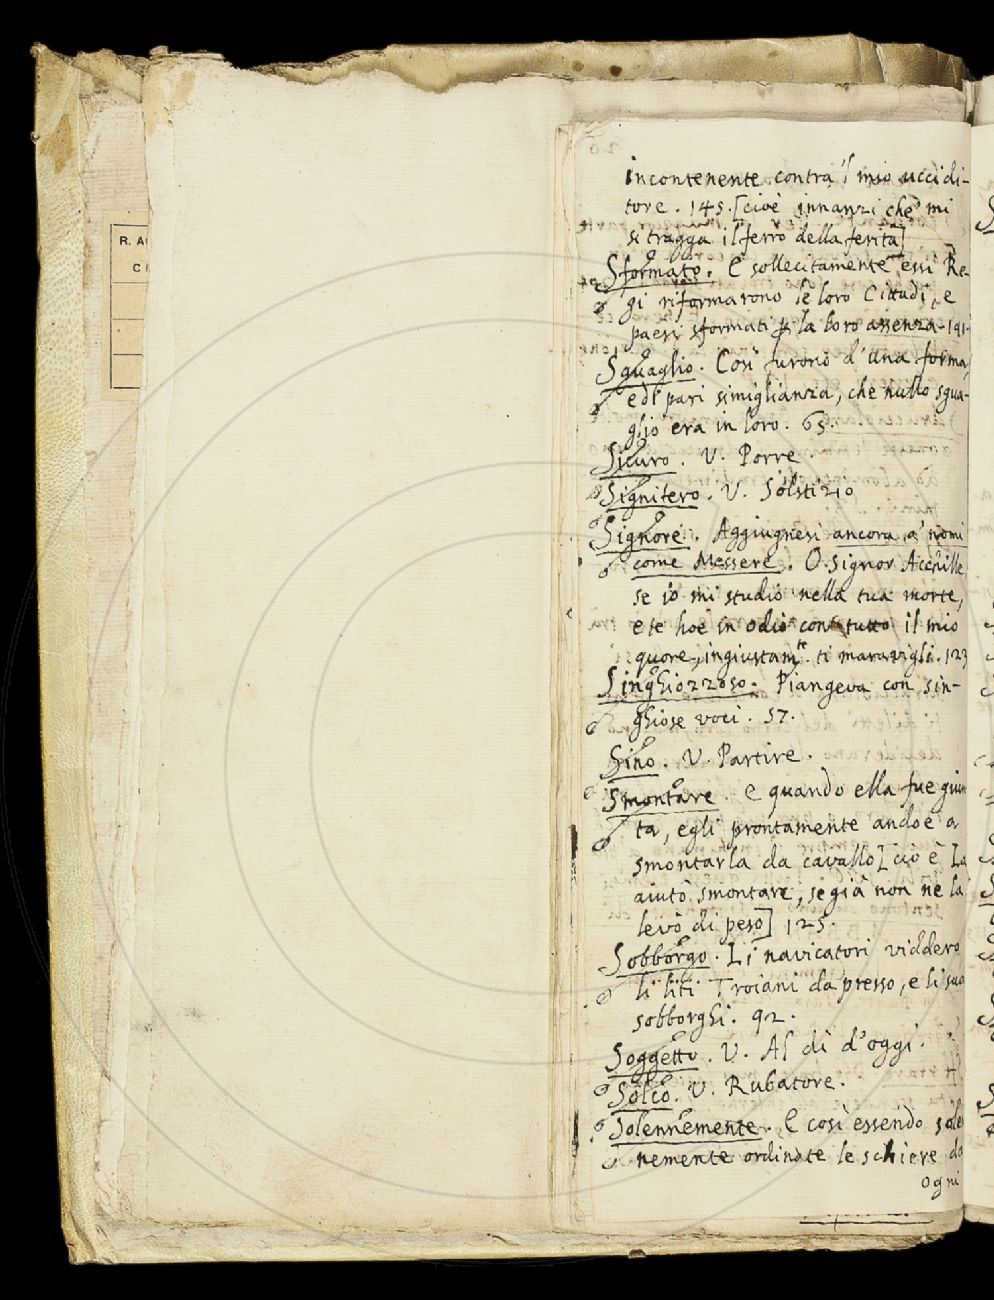 R. A
C
incontenente contra 'l mio uccidi-
tore. 145. [cioè innanzi che mi
si tragga il ferro della ferita]
Sformato. E sollecitamente essi Re-
gi riformarono le loro Cittadi, e
paesi sformati ꝑ la loro assenza. 191.
Sguaglio. Così furono d'una forma,
e di pari simiglianza, che nullo sgua-
glio era in loro. 65.
Sicuro. V. Porre
Signifero. V. Solstizio
Signore. Aggiugnesi ancora a' nomi
come Messere. O Signor Acchille
se io mi studio nella tua morte,
e te hoe in odio con tutto il mio
quore, ingiustamte. ti maravigli. 123
Singhiozzoso. Piangeva con sin-
ghiose voci. 57.
Sino. V. Partire.
Smontare. e quando ella fue giun
ta, egli prontamente andoe a
smontarla da cavallo [cioè la
aiutò smontare, se già non ne la
levò di peso] 125.
Sobborgo. Li navicatori viddero
li liti Troiani da presso, e li suo
sobborghi. 92.
Soggetto. V. Al dì d'oggi.
Solco. V. Rubatore.
Solennemente. E così essendo sole
nemente ordinate le schiere da
ogni